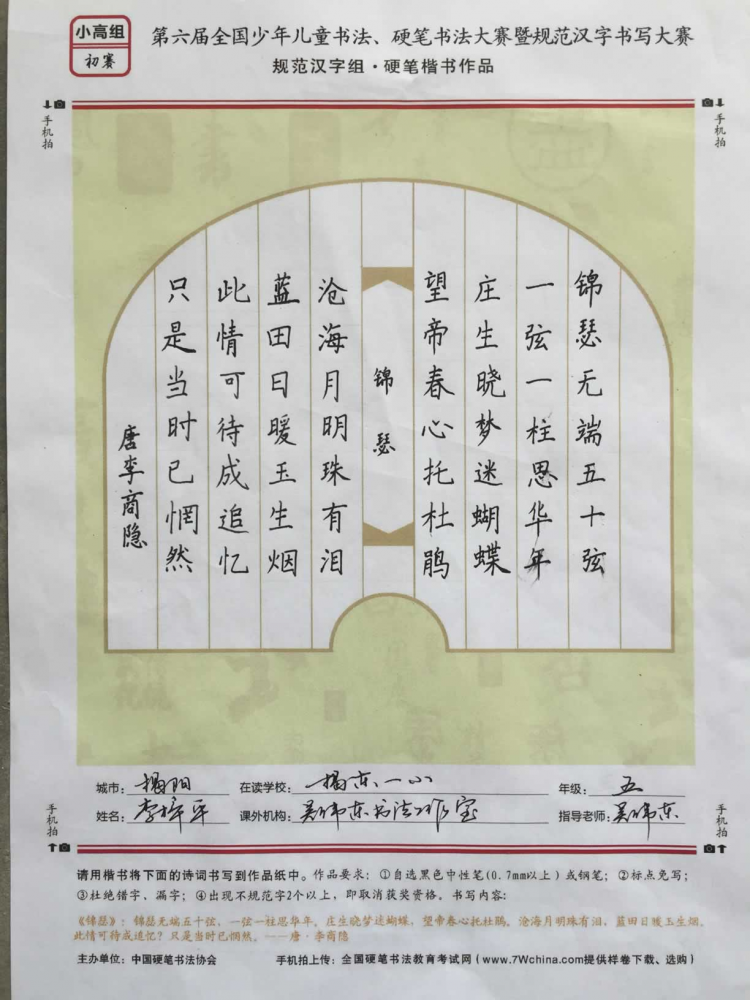 小高组
初赛
第六届全国少年儿童书法、硬笔书法大赛暨规范汉字书写大赛
规范汉字组·硬笔楷书作品
手机拍
手机拍
锦瑟无端五十弦
一弦一柱思华年
庄生晓梦迷蝴蝶
望帝春心托杜鹃
锦瑟
沧海月明珠有泪
蓝田日暖玉生烟
此情可待成追忆
只是当时已惘然
唐李商隐
城市：揭阳 在读学校：揭东一小 年级：五
姓名：李梓平 课外机构：吴伟东书法工作室 指导老师：吴伟东
手机拍
手机拍
请用楷书将下面的诗词书写到作品纸中。作品要求：①自选黑色中性笔(0.7mm以上)或钢笔；②标点免写；
③杜绝错字、漏字；④出现不规范字2个以上，即取消获奖资格。书写内容：
《锦瑟》：锦瑟无端五十弦，一弦一柱思华年。庄生晓梦迷蝴蝶，望帝春心托杜鹃。沧海月明珠有泪，蓝田日暖玉生烟。
此情可待成追忆？只是当时已惘然。——唐·李商隐
主办单位：中国硬笔书法协会 手机拍上传：全国硬笔书法教育考试网(www.7Wchina.com提供样卷下载、选购)